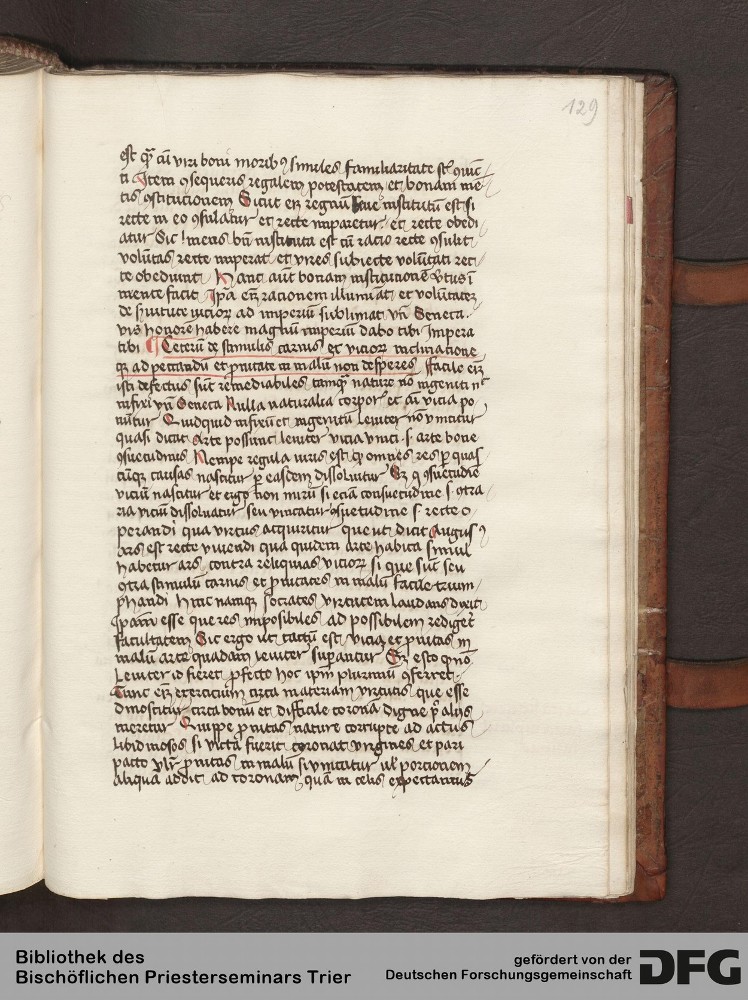 129
est qꝫ cū viri boni moribꝰ similes familiaritate st̄ ꝯiūc
ti Item ꝯsequeris regalem potestatem et bonam mē
tis ꝯstitucionem Sicut em̄ regnū bene institutū est si
recte in eo ꝯsulatur et recte imparetur et recte obedi
atur Sic mens bn̄ instituta est cū racio recte ꝯsulit
volūtas recte imperat et vires subiecte volūtati rec
te obediunt Hanc aūt bonam institucionē v̾tus ī
mente facit Ipa em̄ racionem illuminat et volūtateꝫ
de suitute vicioꝝ ad imperiū sublimat vn̄ Seneca
vis honorē habere magnū imperiū dabo tibi Impera
tibi Ceterū de stimulis carnis et vicioꝝ inclinatione
qꝫ ad peccandū et prauitate in malū non desperes Facile em̄
isti defectus sūt remediabiles tamqꝫ nature nō ingeniti nͨ
infixi vn̄ Seneca Nulla naturalia corpoꝝ et aī vicia po
nūtur Quidquid infixū et ingenitū leuiter nō vincitur
quasi dicat Arte possunt leuiter vicia vinci .s. arte bone
ꝯsuetudinis Nempe regula iuris est qꝫ omnes res ꝑ quas
cūqꝫ causas nascitur ꝑ easdem dissoluitur Sꝫ ex ꝯsuetudīe
viciū nascitur et ergo non mirū si eciā consuetudine .s. ꝯtra
ria viciū dissoluatur seu vincatur ꝯsuetudine .s. recte o
perandi qua virtus acquiritur que ut dicit Augusꝰ
Ars est recte viuendi qua quidem arte habita simul
habetur ars contra reliquias vicioꝝ si que sint seu
ꝯtra stimulū carnis et prauitates in malū facile trium
phandi Hinc namqꝫ socrates virtutem laudans dixit
ipam esse que res imposibiles ad possibilem redigeret
facultatem Sic ergo ut tactū est vicia et prauitas in
malū arte quadam leuiter supantur Sꝫ esto qꝫ nō
leuiter id fieret profecto hoc ipm̄ plurimū ꝯferret
Tunc em̄ exercicium circa materiam virtutis que esse
dinoscitur circa bonū et difficile corona digne pre aliis
meretur Quippe prauitas nature corrupte ad actus
libidinosos si victa fuerit coronat virgines et pari
pacto vlr̄ prauitas in malū si vincitur ul̄ porcionem
aliqua addit ad coronam quā in celis expectantis
Bibliothek des
Bischöflichen Priesterseminars Trier
gefördert von der
Deutschen Forschungsgemeinschaft
DFG